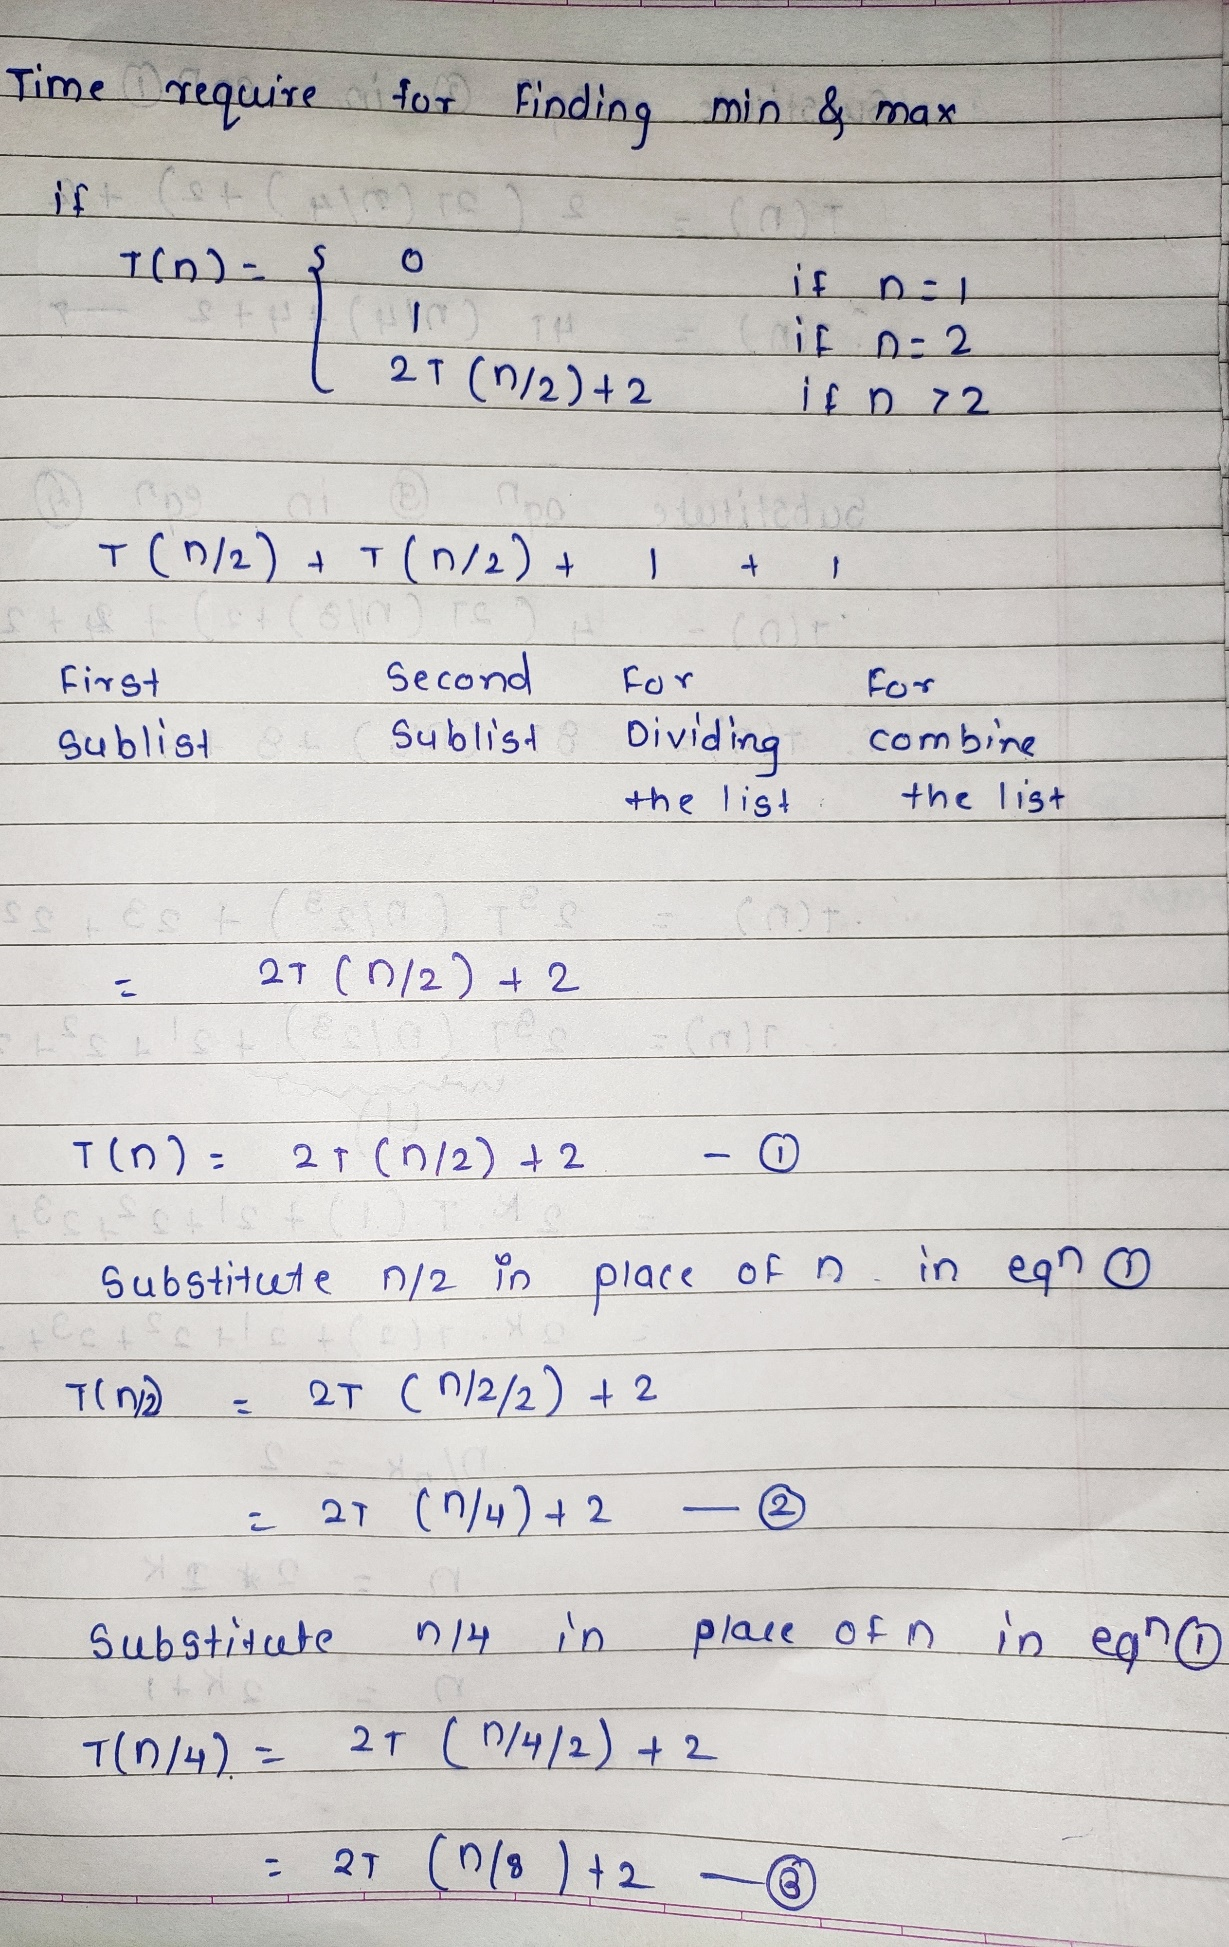 Time require for Finding min & max
if
T(n) = { 0 if n = 1
1 if n = 2
2T (n/2) + 2 if n > 2
T (n/2) + T (n/2) + 1 + 1
First Second For For
Sublist Sublist Dividing combine
the list the list
= 2T (n/2) + 2
T(n) = 2T (n/2) + 2 - ①
Substitute n/2 in place of n in eqn ①
T(n/2) = 2T (n/2/2) + 2
= 2T (n/4) + 2 — ②
Substitute n/4 in place of n in eqn ①
T(n/4) = 2T (n/4/2) + 2
= 2T (n/8) + 2 — ③